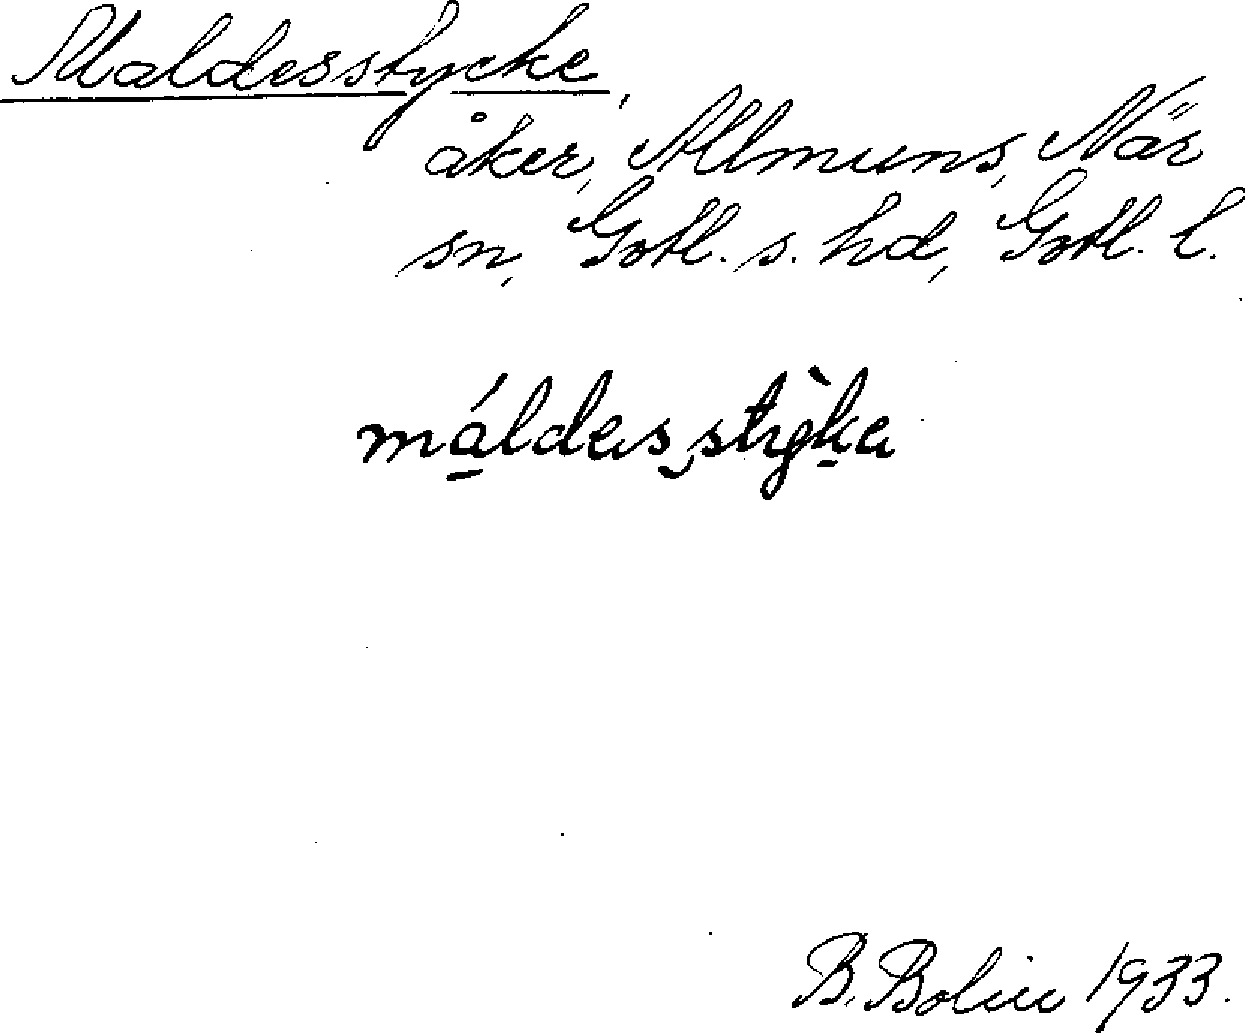 Maldesstycke,
åker, Allmuns, När
sn, Gotl. s. hd, Gotl. l.
máldas stỳka
B. Bolin 1933.